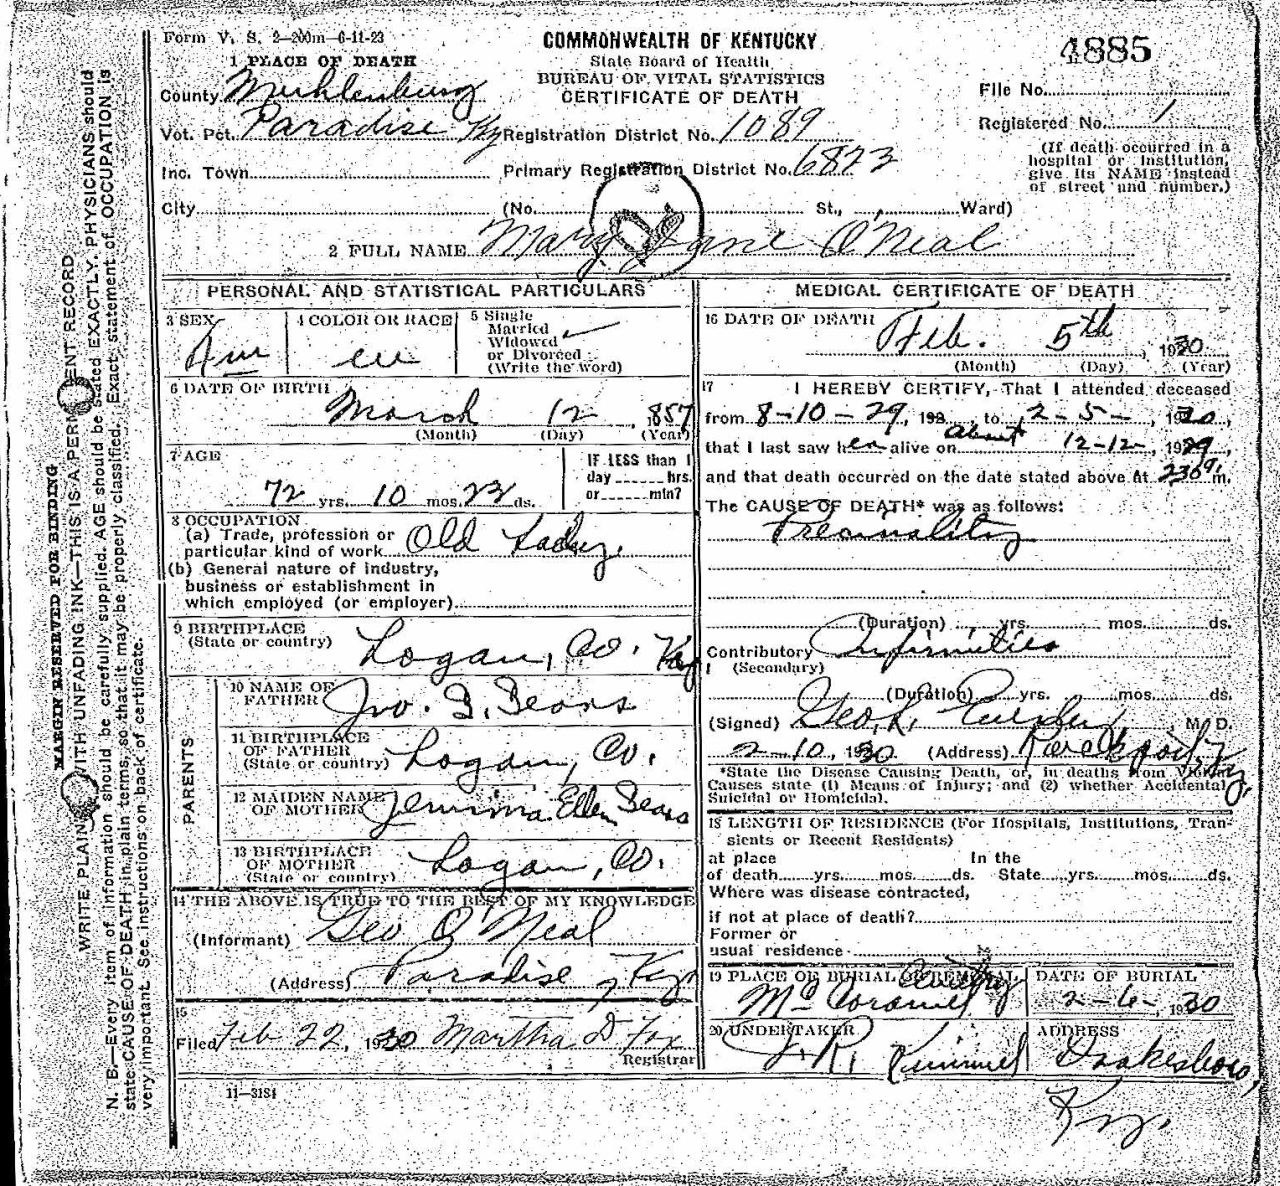 Form V. S. 2—200m—6-11-23
COMMONWEALTH OF KENTUCKY
State Board of Health
BUREAU OF VITAL STATISTICS
CERTIFICATE OF DEATH
4885
1 PLACE OF DEATH
County Muhlenburg
File No.
Vot. Pct. Paradise Ky
Registration District No. 1089
Registered No. 1
Inc. Town
Primary Registration District No. 6823
(If death occurred in a hospital or institution, give its NAME instead of street and number.)
City (No. St., Ward)
2 FULL NAME Mary Jane O'Neal
PERSONAL AND STATISTICAL PARTICULARS
3 SEX
4 COLOR OR RACE
5 Single
Married
Widowed
or Divorced
(Write the word)
6 DATE OF BIRTH
March 12, 1857
(Month) (Day) (Year)
7 AGE
72 yrs. 10 mos. 23 ds.
IF LESS than 1
day hrs.
or min?
8 OCCUPATION
(a) Trade, profession or
particular kind of work Old Lady.
(b) General nature of industry,
business or establishment in
which employed (or employer)
9 BIRTHPLACE
(State or country) Logan, Co. Ky
PARENTS
10 NAME OF
FATHER Jno. Sears
11 BIRTHPLACE
OF FATHER
(State or country) Logan, Co.
12 MAIDEN NAME
OF MOTHER Jemima Ellen Sears
13 BIRTHPLACE
OF MOTHER
(State or country) Logan, Co.
14 THE ABOVE IS TRUE TO THE BEST OF MY KNOWLEDGE
(Informant) Geo O'Neal
(Address) Paradise, Ky
15
Filed Feb 22, 1930 Martha D Fox
Registrar
11—3184
MEDICAL CERTIFICATE OF DEATH
16 DATE OF DEATH
Feb. 5th, 1930
(Month) (Day) (Year)
17 I HEREBY CERTIFY, That I attended deceased
from 8-10-29, 192 , to 2-5-, 1930,
that I last saw her alive on about 12-12-, 1929
and that death occurred on the date stated above at 230 a m.
The CAUSE OF DEATH* was as follows:
(Duration) yrs. mos. ds.
Contributory Infirmities
(Secondary)
(Duration) yrs. mos. ds.
(Signed) Geo. L. M. D.
2-10, 1930 (Address) Rockport, Ky.
*State the Disease Causing Death, or, in deaths from Violent
Causes state (1) Means of Injury; and (2) whether Accidental,
Suicidal or Homicidal.
18 LENGTH OF RESIDENCE (For Hospitals, Institutions, Tran-
sients or Recent Residents)
at place In the
of death yrs. mos. ds. State yrs. mos. ds.
Where was disease contracted,
if not at place of death?
Former or
usual residence
19 PLACE OF BURIAL OR REMOVAL
DATE OF BURIAL
2-6-, 1930
20 UNDERTAKER
ADDRESS
J. R. Kimmel
Drakesboro,
Ky.
MARGIN RESERVED FOR BINDING
WRITE PLAINLY WITH UNFADING INK—THIS IS A PERMANENT RECORD
N. B—Every item of information should be carefully supplied. AGE should be stated EXACTLY. PHYSICIANS should
state CAUSE OF DEATH in plain terms, so that it may be properly classified. Exact statement of OCCUPATION is
very important. See instructions on back of certificate.